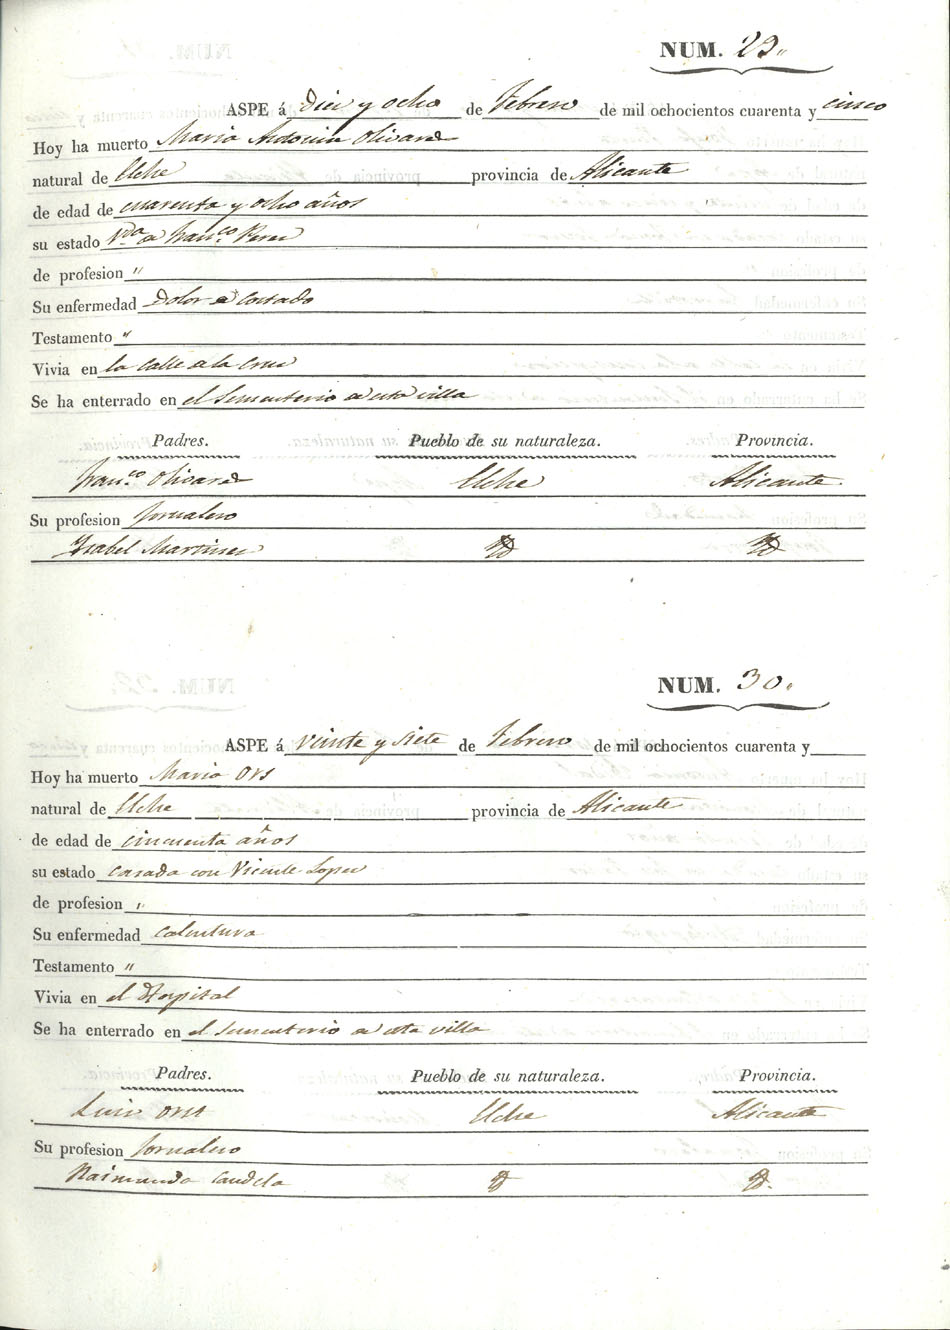 NUM. 29.
ASPE á Diez y ocho de Febrero de mil ochocientos cuarenta y cinco
Hoy ha muerto Maria Antonia Olivares
natural de Elche provincia de Alicante
de edad de cuarenta y ocho años
su estado Vda. de Franco. Perez
de profesion "
Su enfermedad Dolor de Costado
Testamento "
Vivia en la Calle de la Cruz
Se ha enterrado en el Sementerio de esta villa
Padres. Pueblo de su naturaleza. Provincia.
Franco. Olivares Elche Alicante.
Su profesion Jornalero
Ysabel Martinez Yd Yd
NUM. 30.
ASPE á Veinte y siete de Febrero de mil ochocientos cuarenta y
Hoy ha muerto Maria Ors
natural de Elche provincia de Alicante
de edad de cincuenta años
su estado casada con Vicente Lopez
de profesion "
Su enfermedad Calentura
Testamento "
Vivia en el Hospital
Se ha enterrado en el Sementerio de esta villa
Padres. Pueblo de su naturaleza. Provincia.
Luis Ors Elche Alicante
Su profesion Jornalero
Raimunda Candela Yd Yd.